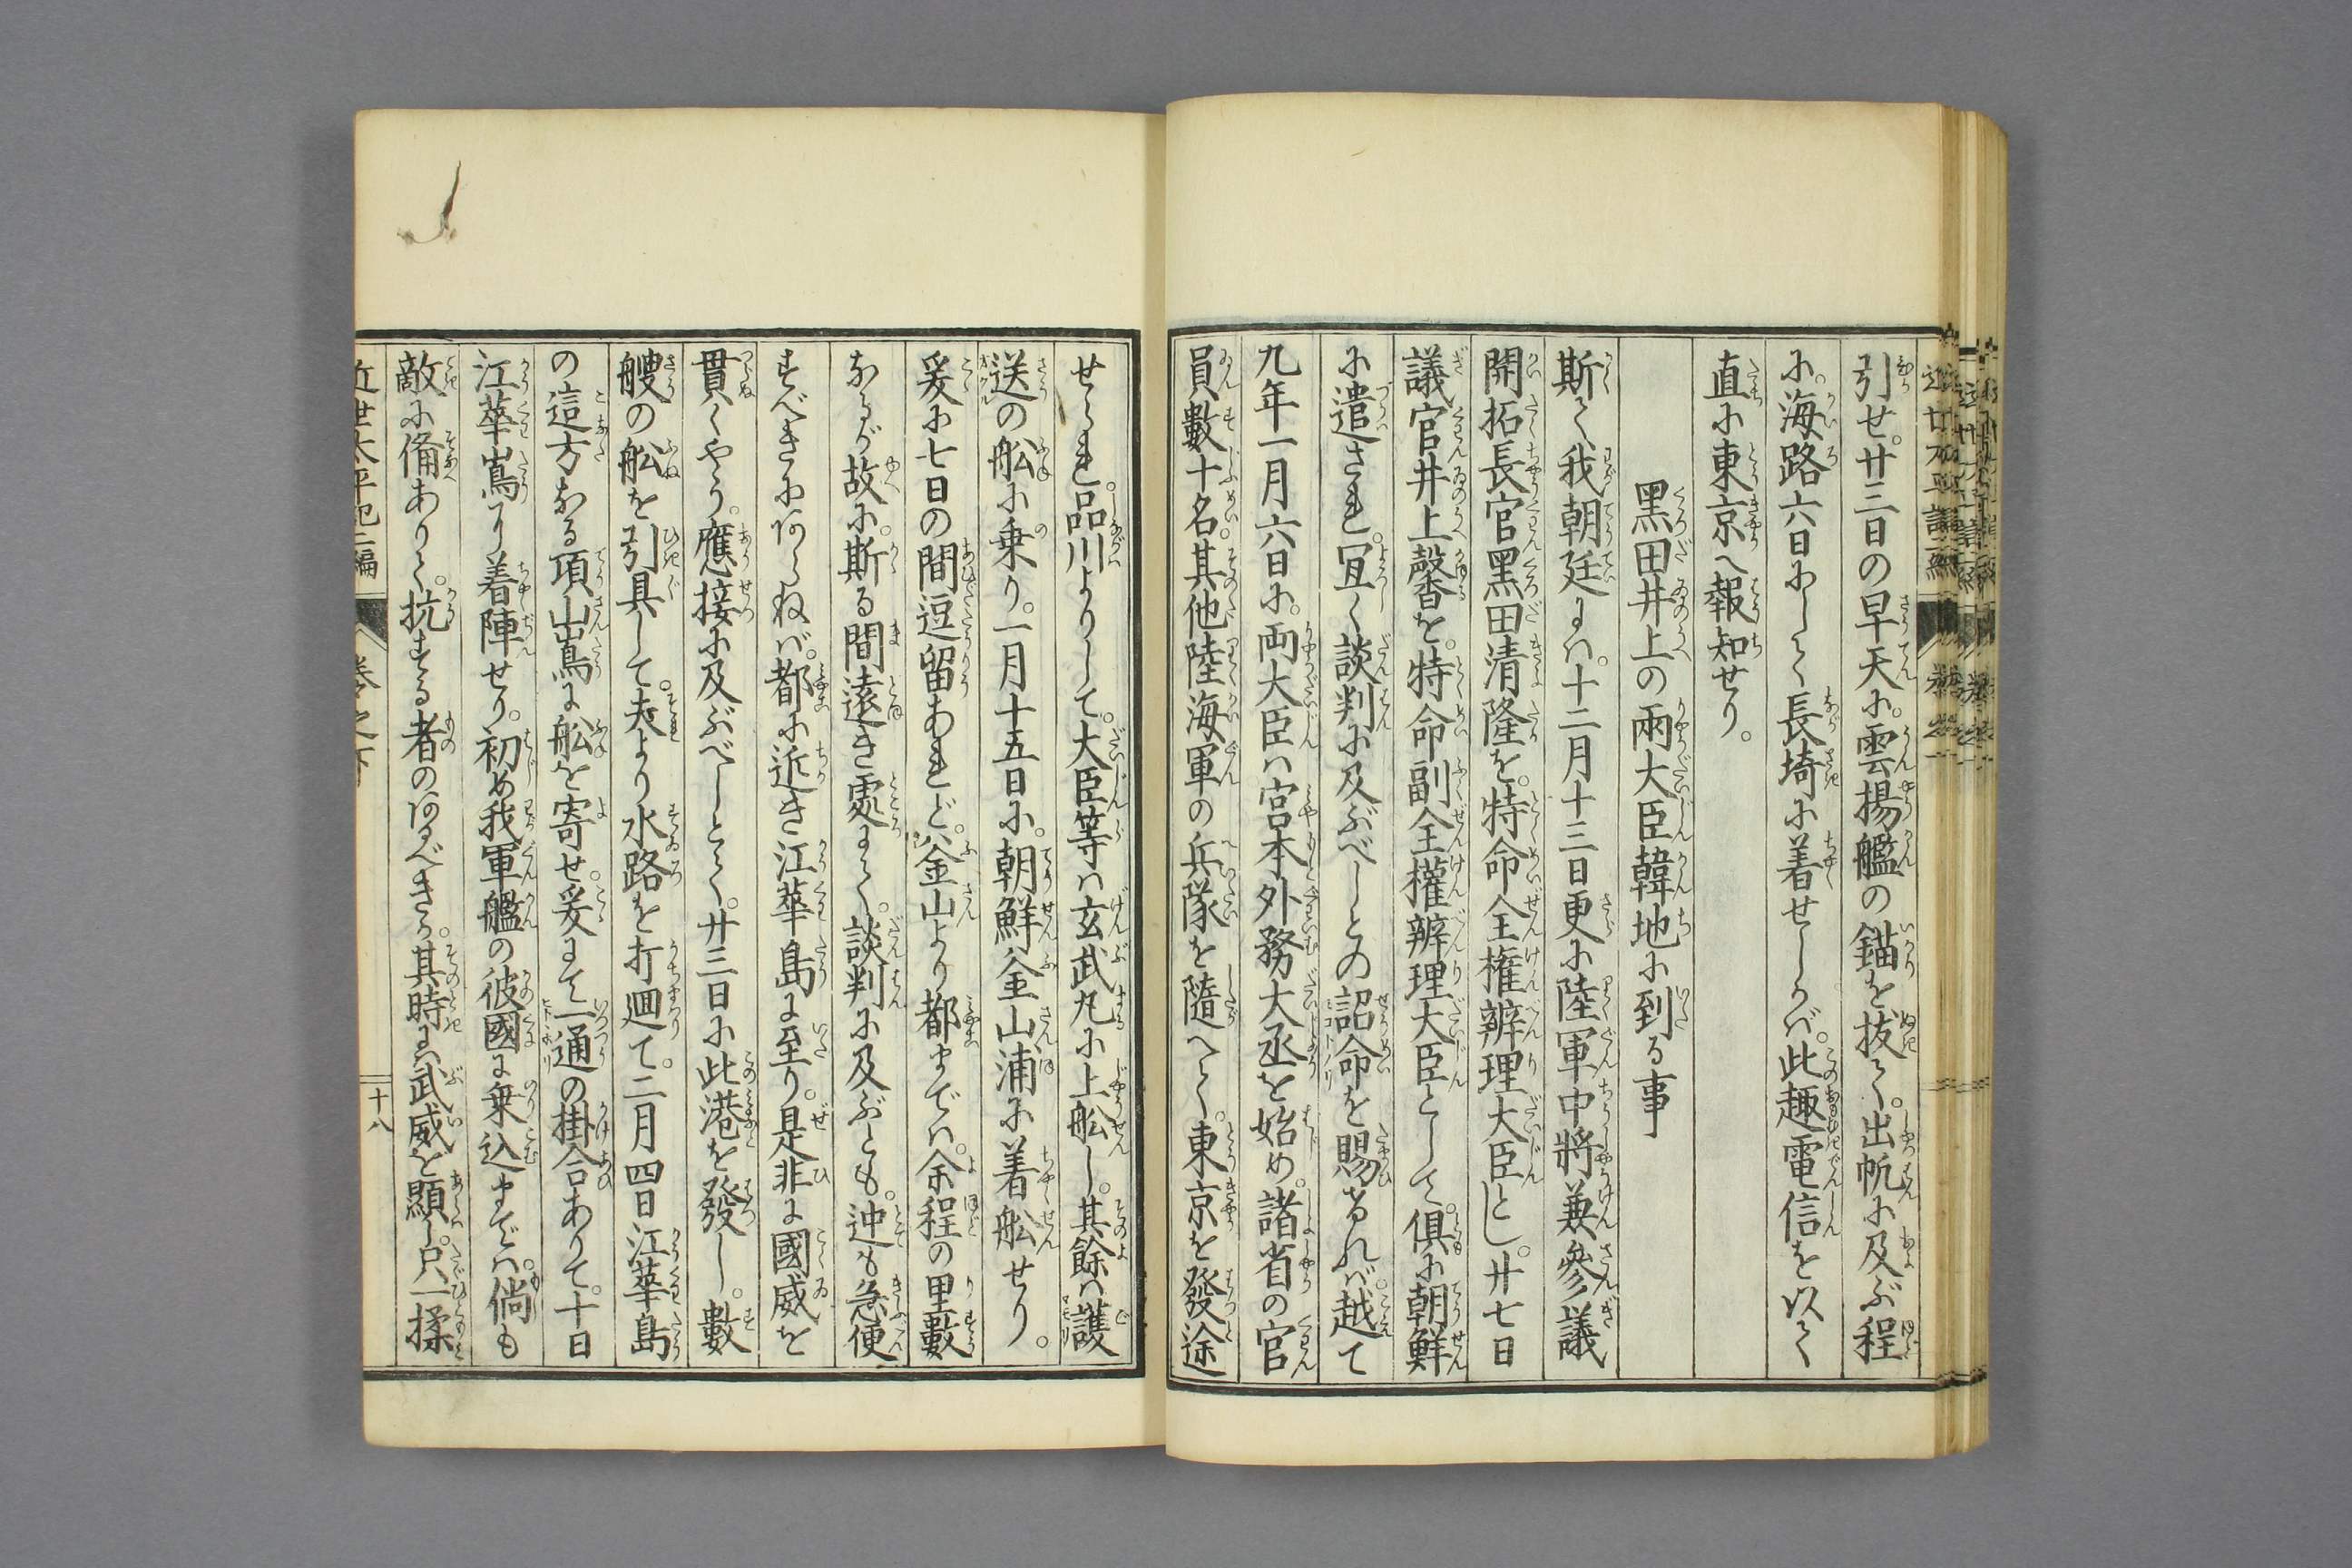 引せ。廿三日の早天に。雲揚艦の錨を抜て。出帆に及ぶ程
に。海路六日にして長埼に着せしかば。此趣電信を以て
直に東京へ報知せり。
黒田井上の兩大臣韓地に到る事
斯て我朝廷には。十二月十三日更に陸軍中將兼參議
開拓長官黒田清隆を。特命全権辨理大臣とし。廿七日
議官井上馨を。特命副全權辨理大臣として。俱に朝鮮
に遣され。冝く談判に及ぶべしとの詔命を賜はれば。越て
九年一月六日に。両大臣は宮本外務大丞を始め。諸省の官
員數十名。其他陸海軍の兵隊を隨へて。東京を發途
せられ。品川よりして。大臣等は玄武丸に上舩し。其餘は護
送の舩に乗り。一月十五日に。朝鮮釜山浦に着舩せり。
爰に七日の間逗留あれど。釜山より都までは。余程の里數
なるが故に。斯る間遠き處にて。談判に及ぶとも。迚も急便
すべきにあらねば。都に近き江華島に至り。是非に國威を
貫くやう。應接に及ぶべしとて。廿三日に此港を發し。數
艘の舩を引具して。夫より水路を打廻て。二月四日江華島
の這方なる項山島に舩を寄せ。爰にて一通の掛合ありて。十日
江華嶌に着陣せり。初め我軍艦の彼國に乗込までは。倘も
敵に備ありて。抗する者のあるべきか。其時は武威を顯し。只一揉
近世太平記二編
卷之下
十八